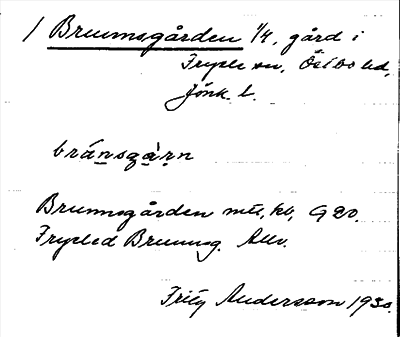 / Brunnsgården 1/4, gård i
Fryele sn, Östbo hd,
Jönk. l.
bránsgà̱ṟṉ
Brunnsgården mtl, kb, G 20.
Fryeled Brunnsg. Allv.
Fritz Andersson 1930.